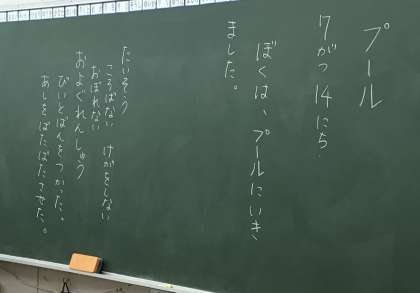 プール
7がつ14にち
ぼくは、プールにいき
ました。
たいそう
ころばない けがをしない
おぼれない
およぐれんしゅう
びいとばんをつかった。
あしをばたばたさせた。